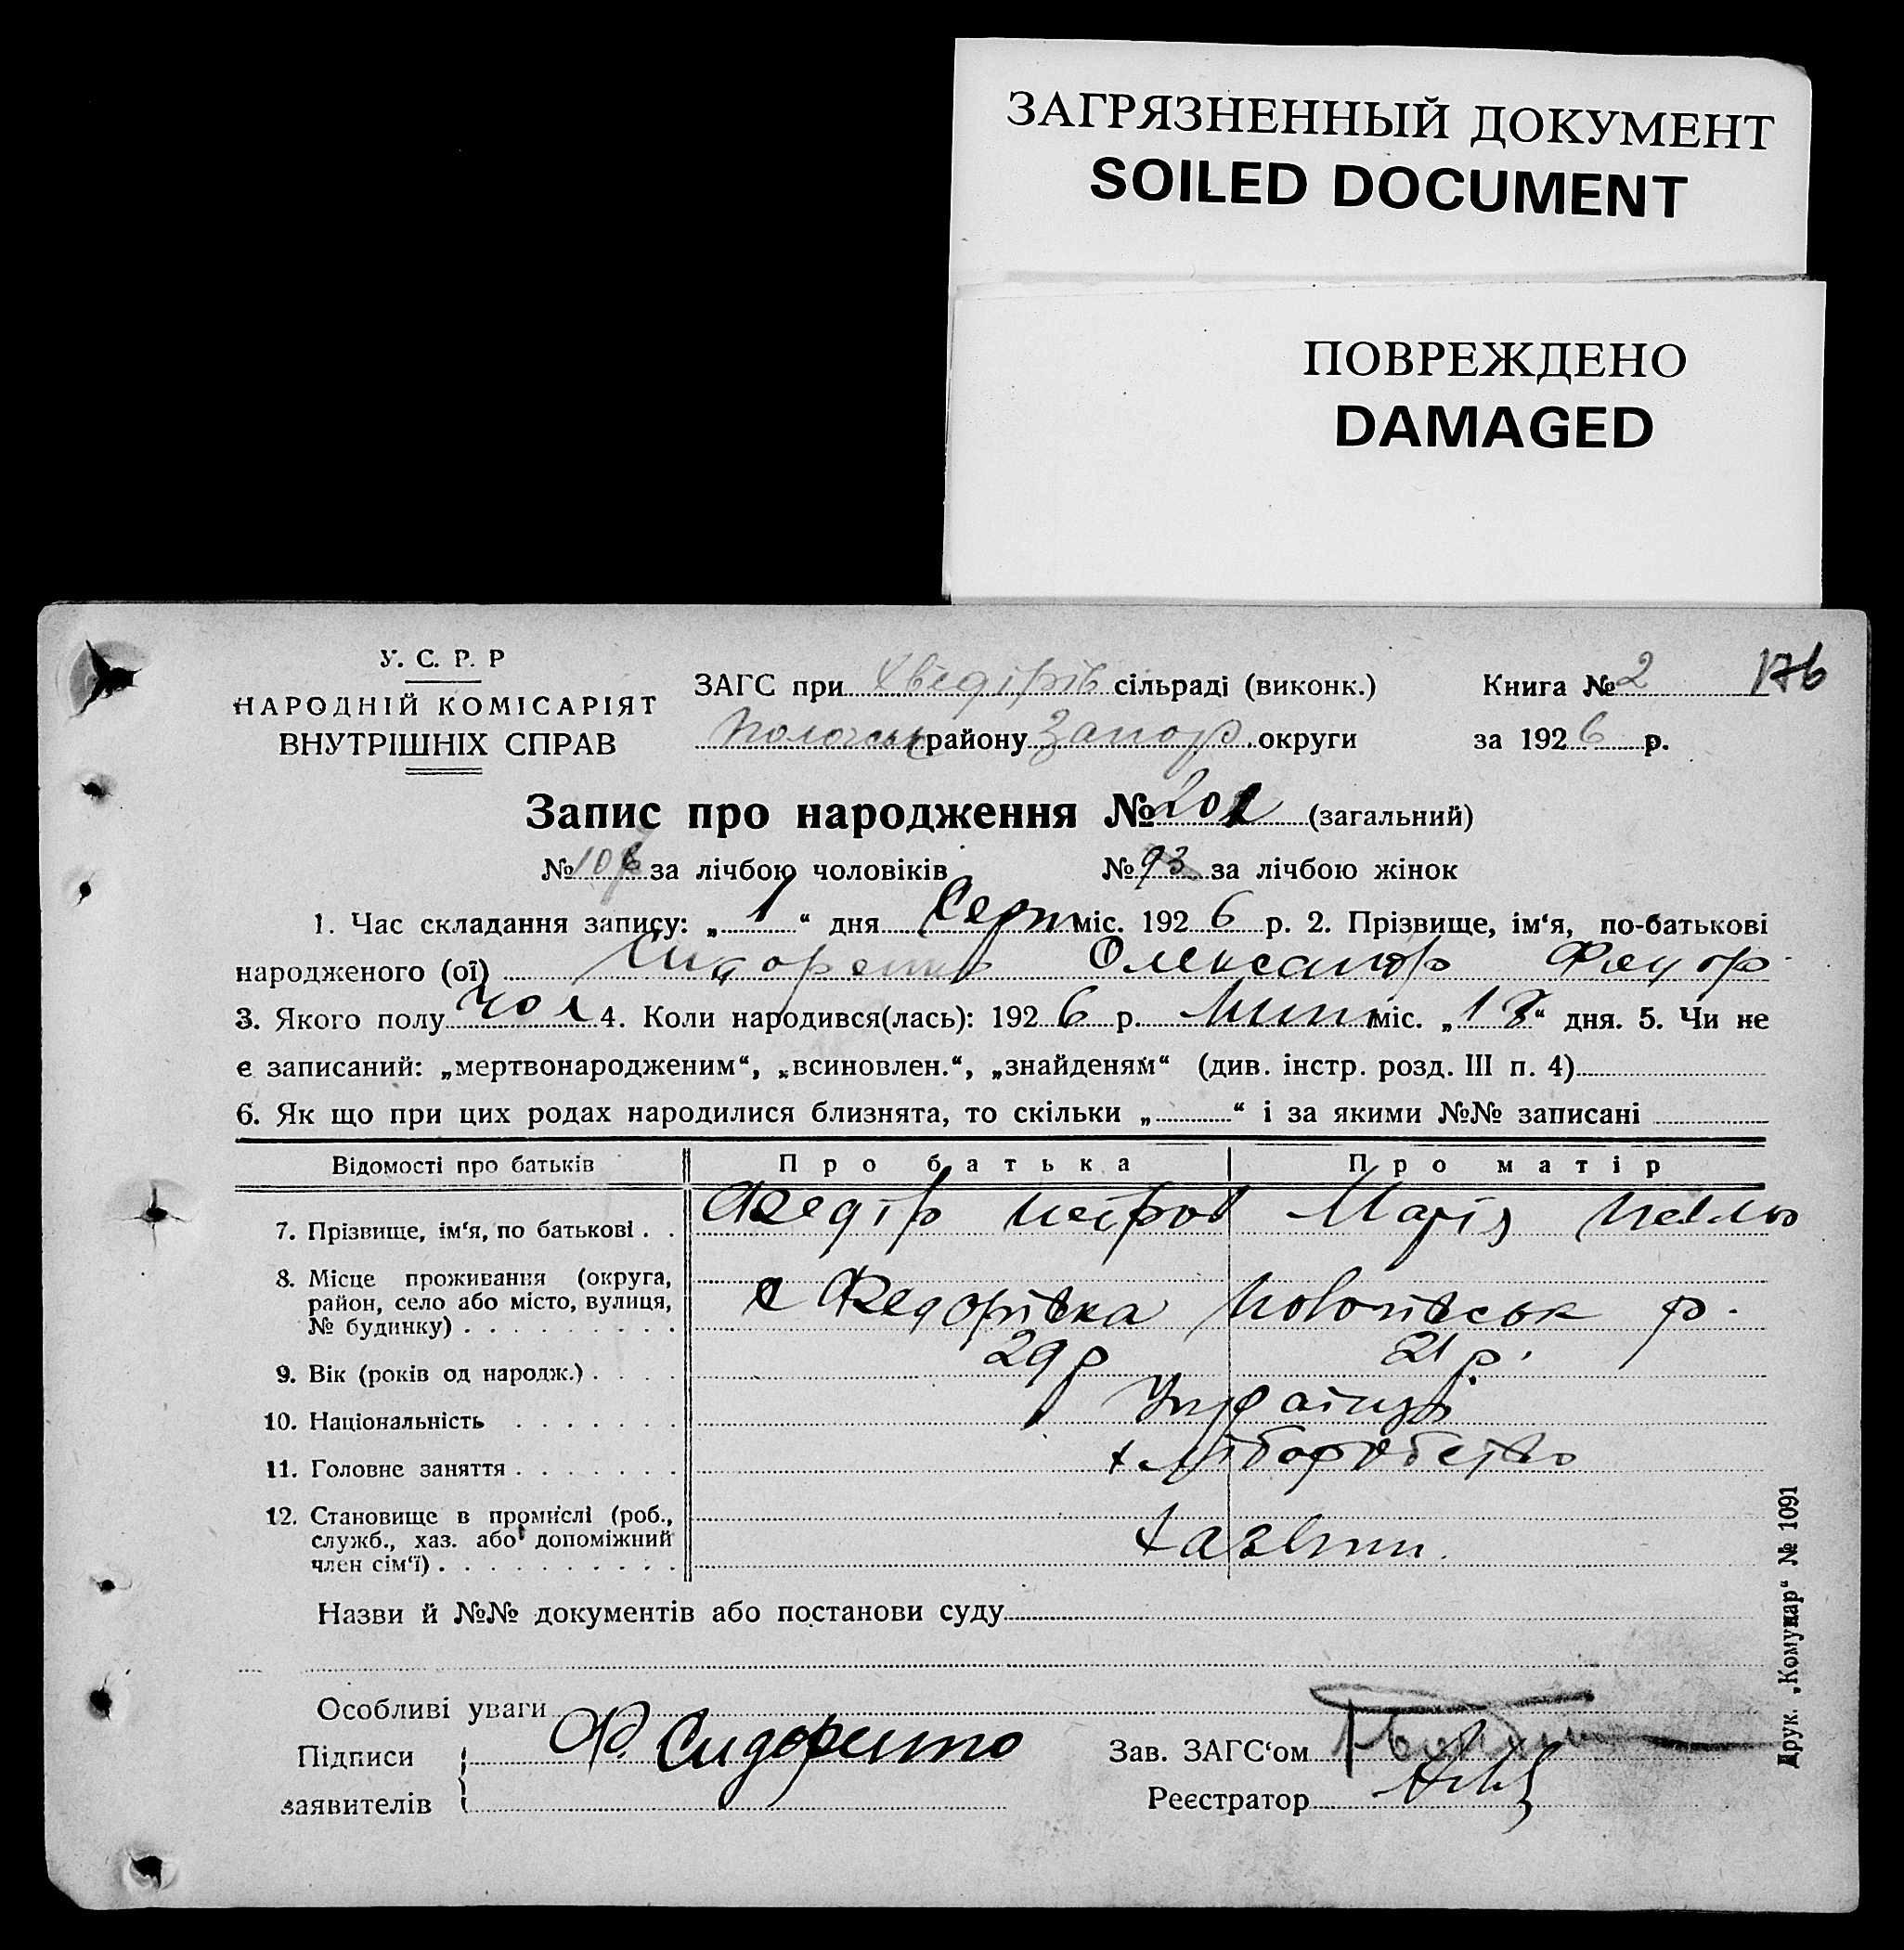 ЗАГРЯЗНЕННЫЙ ДОКУМЕНТ
SOILED DOCUMENT
ПОВРЕЖДЕНО
DAMAGED
У. С. Р. Р
НАРОДНІЙ КОМІСАРІЯТ
ВНУТРІШНІХ СПРАВ
ЗАГС при Хведірів сільраді (виконк.) Книга № 2 176
району Запор. округи за 1926 р.
Запис про народження № 201 (загальний)
№ за лічбою чоловіків № 93 за лічбою жінок
1. Час складання запису: „ 1 “ дня Серп міс. 192 6 р. 2. Прізвище, ім‘я, по-батькові
народженого (ої) Сидоренко Олександр Федор
3. Якого полу чол 4. Коли народився(лась): 192 6 р. Лип міс. „ 13 “ дня. 5. Чи не
є записаний: „мертвонародженим“, „всиновлен.“, „знайденям“ (див. інстр. розд. III п. 4)
6. Як що при цих родах народилися близнята, то скільки „ “ і за якими №№ записані
Відомості про батьків Про батька Про матір
7. Прізвище, ім‘я, по батькові . . Федір Петров Марія Павло
8. Місце проживання (округа,
район, село або місто, вулиця,
№ будинку) . . . . . . . . . с Федорівка Пологівськ р.
9. Вік (років од народж.) . . . . 29 р 21 р.
10. Національність . . . . . . . Українці
11. Головне заняття . . . . . . . хліборобство
12. Становище в промислі (роб.,
служб., хаз. або допоміжний
член сім‘ї) . . . . . . . . . .
Назви й №№ документів або постанови суду
Особливі уваги
Підписи Ф. Сидоренко Зав. ЗАГС‘ом
заявителів Реєстратор
Друк. „Комунар“ № 1091